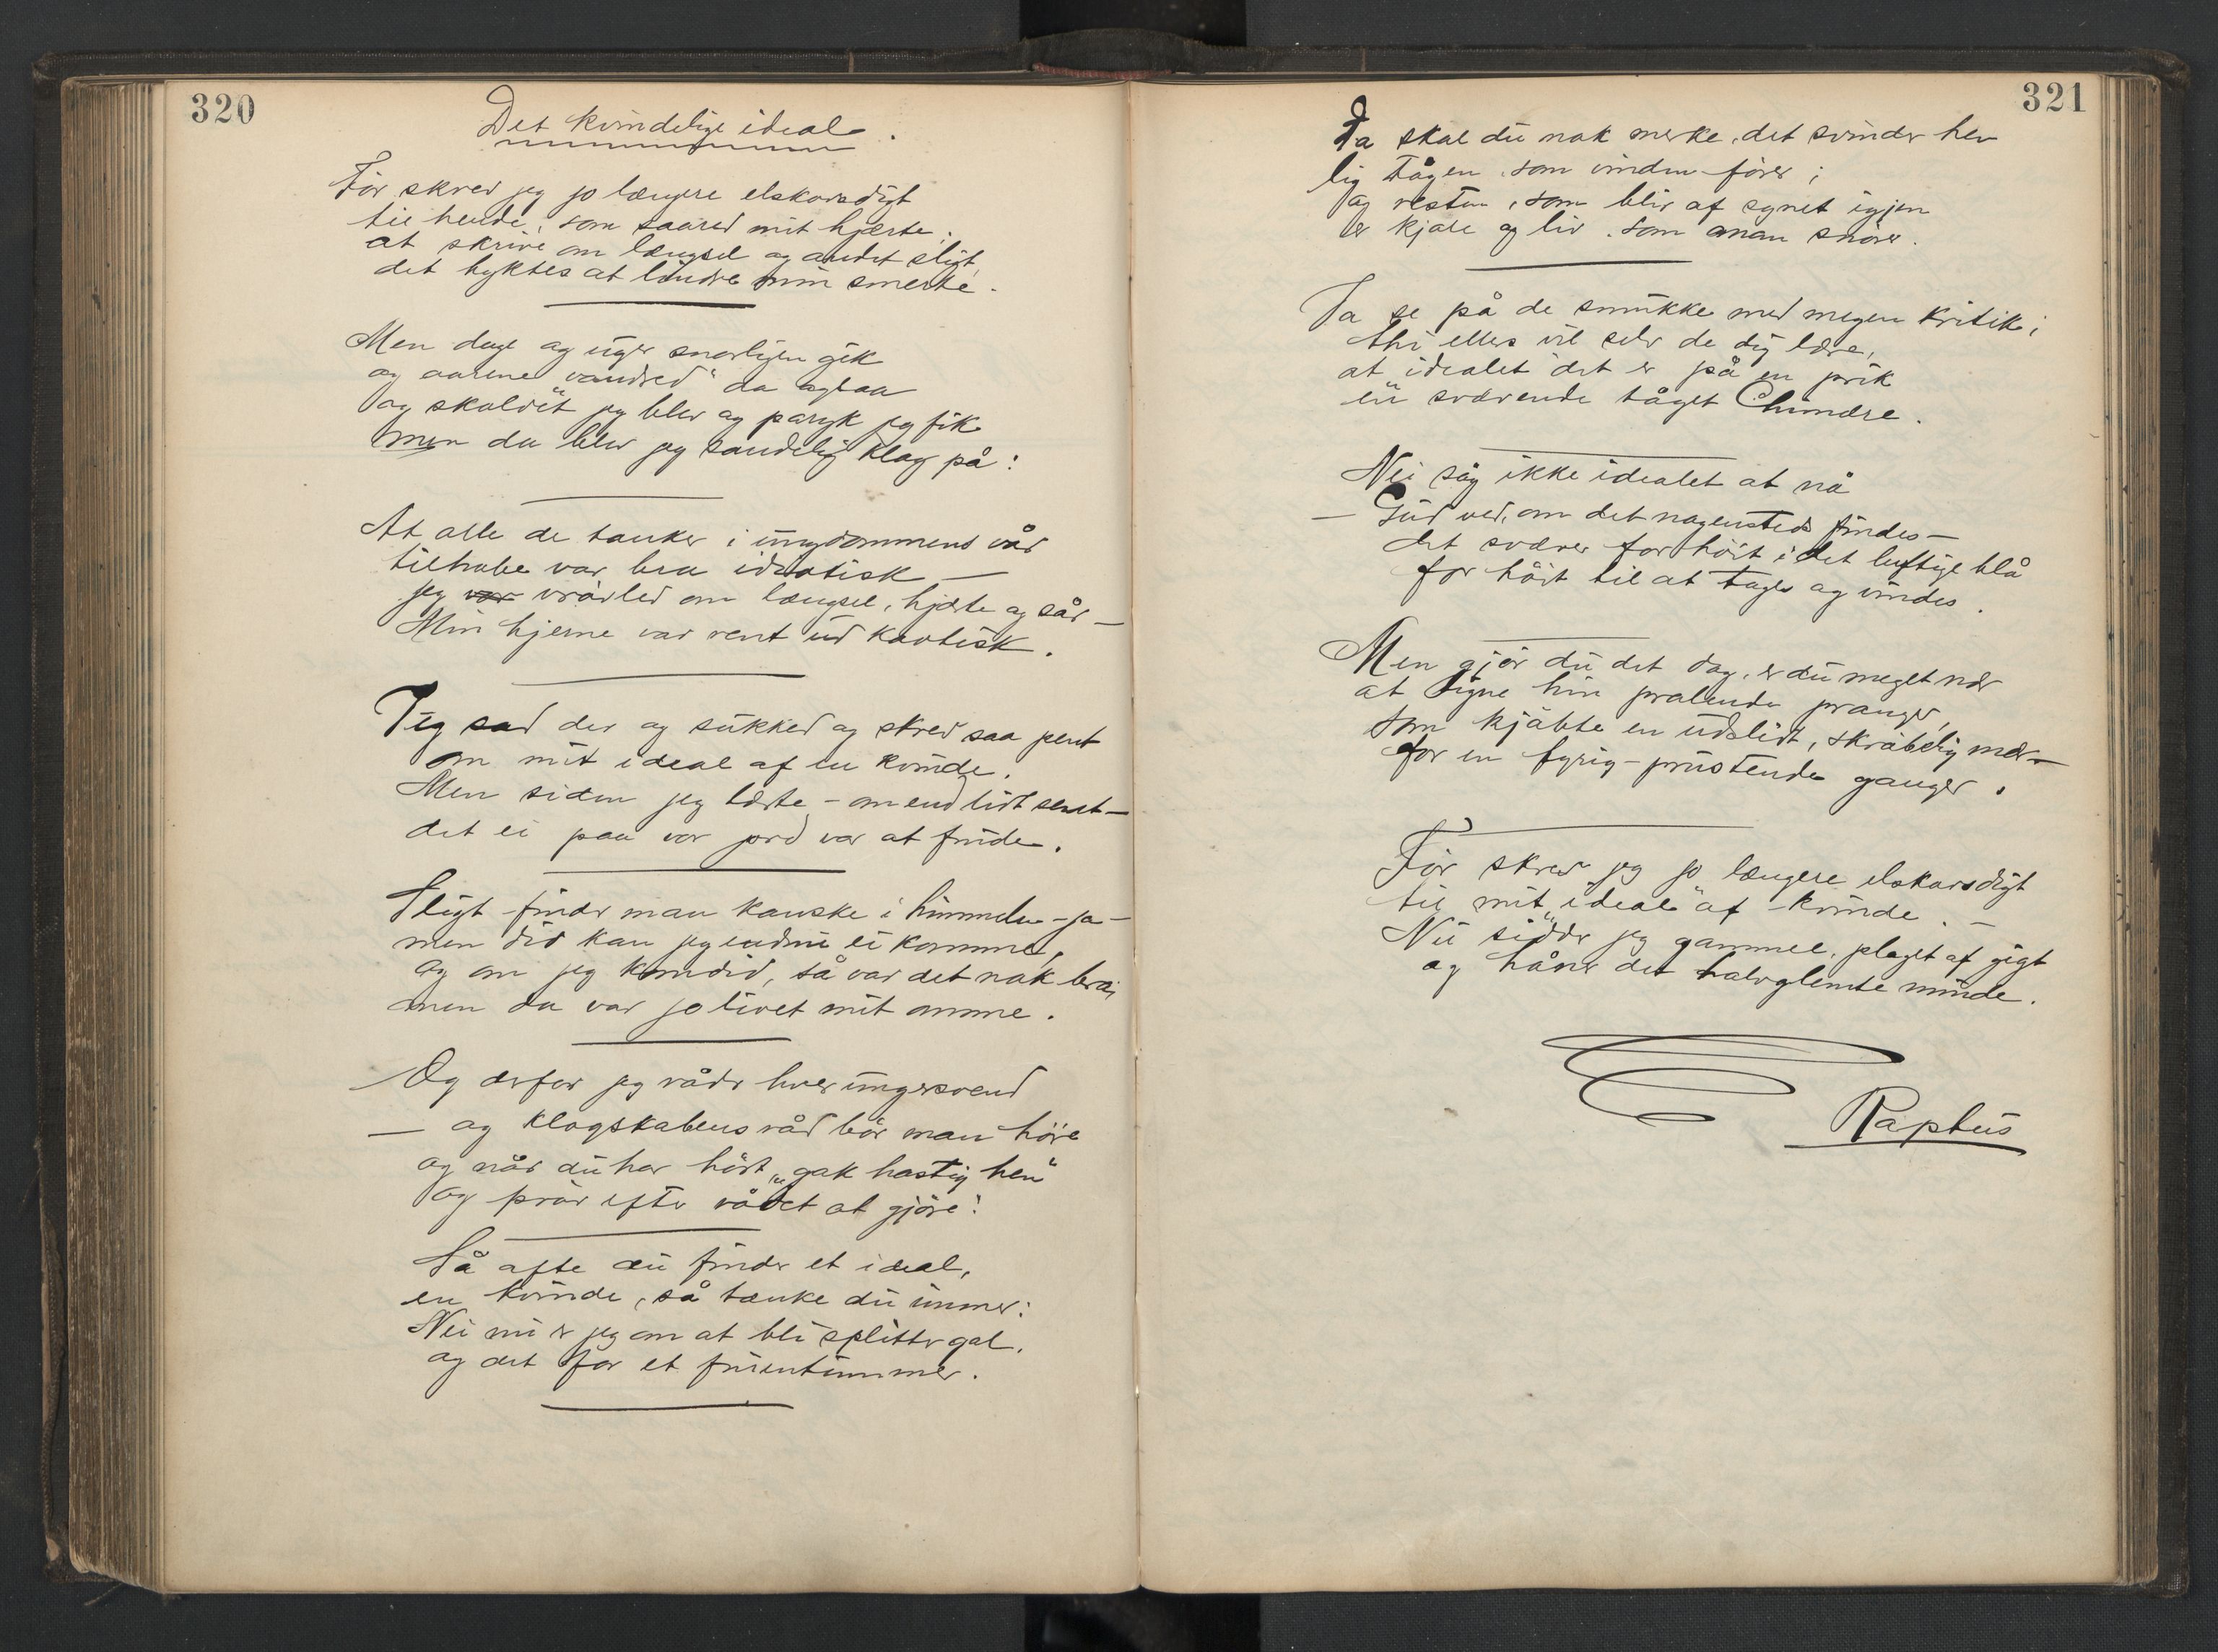 320
Det kvindelige ideal.
Før skrev jeg jo længere elskovsdigt
til hende, som saared mit hjærte;
at skrive om længsel og andet sligt,
det tyktes at lindre min smerte.
Men dage og uger snarligen gik
og aarene "vandred" da ogsaa
og skaldet jeg blev og paryk jeg fik
men da blev jeg sandelig klog på:
At alle de tanker i ungdommens vår
tilhobe var bra idiotisk —
jeg var vrøvled om længsel, hjærte og sår —
Min hjerne var rent ud kaotisk.
Jeg sad der og sukked og skrev saa pent
om mit ideal af en kvinde.
Men siden jeg lærte – om end lidt sent –
det ei paa vor jord var at finde.
Sligt finder man kanske i himmelen – ja –
men did kan jeg endnu ei komme,
og om jeg kom did, så var det nok bra;
men da var jo livet mit omme.
Og derfor jeg råder hver ungersvend
— og klogskabens råd bør man høre
og når du har hørt, „gak hastig hen"
og prøv efter rådet at gjøre!
Så ofte du finder et ideal,
en kvinde, så tænke du immer:
Nei nu er jeg om at bli splitter gal,
og det for et fruentimmer.
321
Da skal du nok merke, det svinder hen
lig tågen, som vinden fører;
og resten, som blir af synet igjen
er kjole og liv, som man snører.
Ja se på de smukke med megen kritik;
thi ellers vil selv de dig lære,
at idealet det er på en prik
en svævende tåget Chimære.
Nei søg ikke idealet at nå
— Gud ved, om det nogensteds findes —
det svæver for høit i det luftige blå
for høit til at tages og vindes.
Men gjør du det dog, er du meget nær
at ligne hin pralende pranger,
som kjøbte en udslidt, skrøbelig mær –
for en fyrig-prustende ganger.
Før skrev jeg jo længere elskovsdigt
til mit „ideal" af kvinde. –
Nu sidder jeg gammel, plaget af gigt
og håner det halvglemte minde.
Raptus